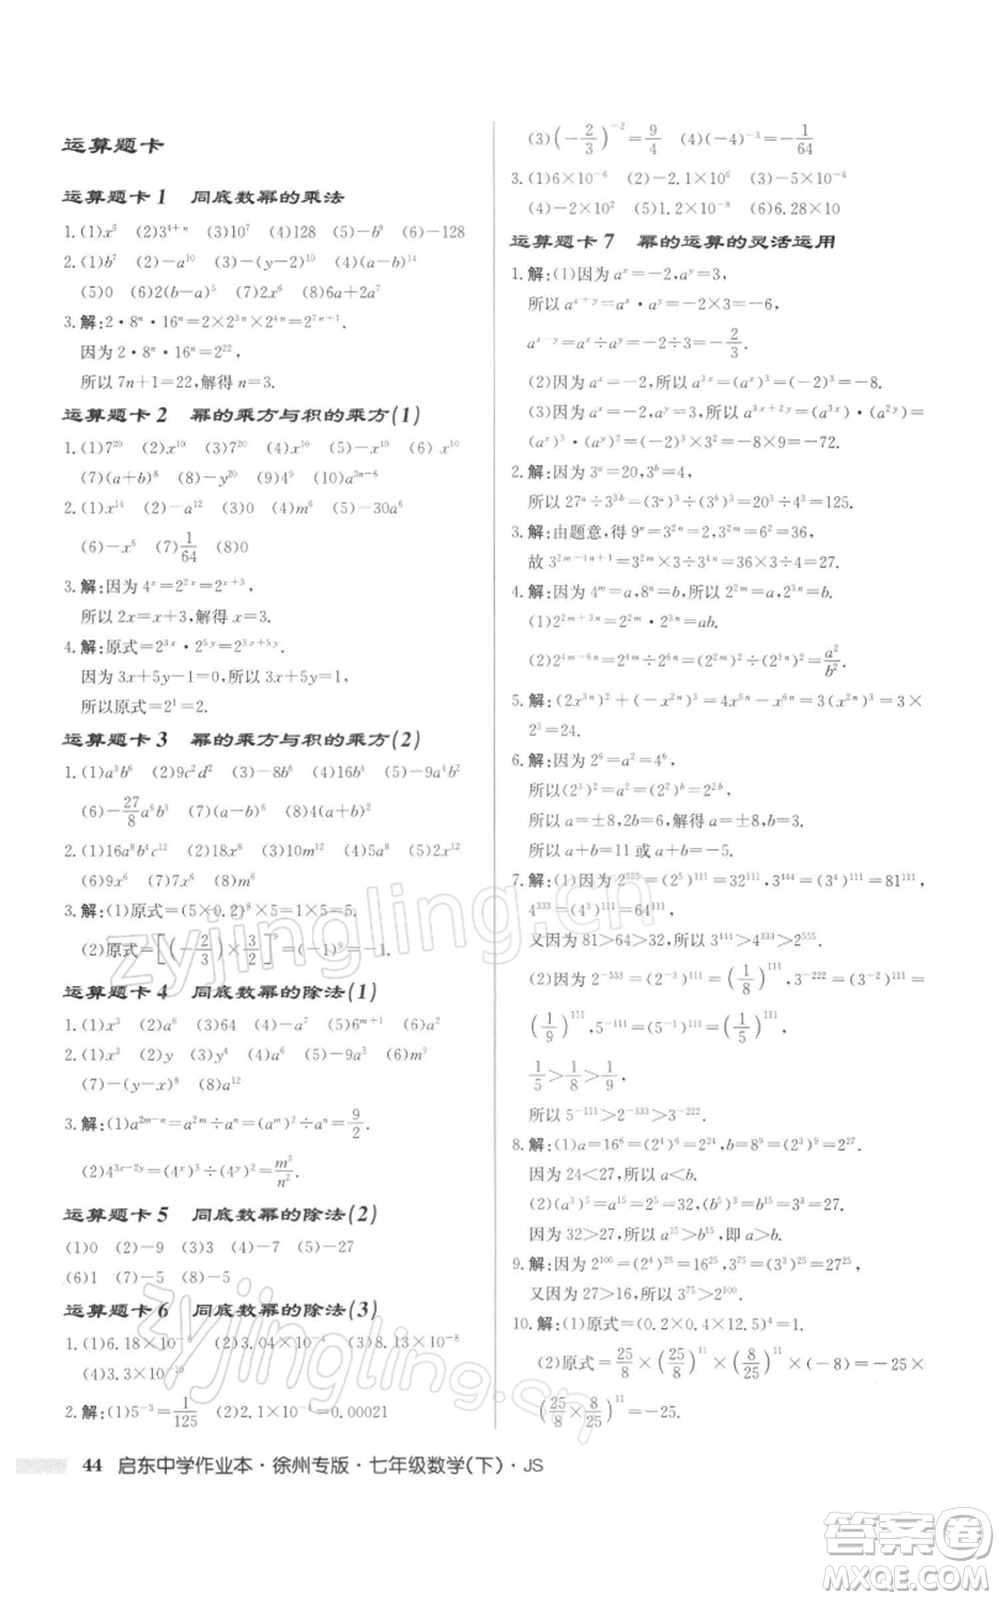 运算题卡
运算题卡 1 同底数幂的乘法
1. (1)x⁵ (2)3⁴⁺ⁿ (3)10⁷ (4)128 (5)-b⁹ (6)-128
2. (1)b⁷ (2)-a¹⁰ (3)-(y-2)¹⁰ (4)(a-b)¹⁴
(5)0 (6)2(b-a)⁵ (7)2x⁶ (8)a⁶+2a⁷
3. 解:2·8ⁿ·16ⁿ=2×2³ⁿ×2⁴ⁿ=2⁷ⁿ⁺¹.
因为 2·8ⁿ·16ⁿ=2²²,
所以 7n+1=22,解得 n=3.
运算题卡 2 幂的乘方与积的乘方(1)
1. (1)7²⁰ (2)x¹⁰ (3)7²⁰ (4)x¹⁰ (5)-x¹⁰ (6)x¹⁰
(7)(a+b)⁸ (8)-x¹⁵ (9)4⁹ (10)a³ⁿ⁻⁶
2. (1)x¹⁴ (2)-a¹² (3)0 (4)m⁶ (5)-30a⁶
(6)-x⁶ (7)1/64 (8)0
3. 解:因为 4ˣ=2²ˣ=2ˣ⁺³,
所以 2x=x+3,解得 x=3.
4. 解:原式=2³ˣ·2⁵ʸ=2³ˣ⁺⁵ʸ.
因为 3x+5y-1=0,所以 3x+5y=1,
所以原式=2¹=2.
运算题卡 3 幂的乘方与积的乘方(2)
1. (1)a³b⁶ (2)9c²d² (3)-8b⁶ (4)16b⁴ (5)-9a⁴b²
(6)-27/8a⁶b⁶ (7)(a-b)⁶ (8)4(a+b)²
2. (1)16a⁸b⁴c¹²
(6)9x⁶
3. 解:(1)原式=(5×0.2)⁸×5=1×5=5.
(2)原式=[(-2/3)×3/2]⁹=(-1)⁹=-1.
运算题卡 4 同底数幂的除法(1)
1. (1)x³ (2)a⁶ (3)64 (4)-x³ (5)6ᵐ⁺¹ (6)a²
2. (1)x³ (2)y (3)y⁴ (6)m⁹
(7)-(y-x)⁸ (8)a¹²
3. 解:(1)a²ᵐ⁻ⁿ=a²ᵐ÷aⁿ=(aᵐ)²÷aⁿ=9/2.
(2)4³ˣ⁻²ʸ=(4ˣ)³÷(4ʸ)²=m³/n².
运算题卡 5 同底数幂的除法(2)
(1)0 (2)-9 (3)3 (4)-7 (5)-27
(6)1 (7)-5 (8)-5
运算题卡 6 同底数幂的除法(3)
1. (1)6.18×10⁻⁶ (2)3.04×10⁻⁴ (3)8.13×10⁻⁸
(4)3.3×10⁻¹⁰
2. 解:(1)5⁻³=1/125 (2)2.1×10⁻⁴=0.00021
(3)(-2/3)⁻²=9/4 (4)(-4)⁻³=-1/64
3. (1)6×10⁻⁶ (2)-2.1×10⁶ (3)-5×10⁻⁴
(4)-2×10² (5)1.2×10⁻⁸ (6)6.28×10
运算题卡 7 幂的运算的灵活运用
1. 解:(1)因为 aˣ=-2,aʸ=3,
所以 aˣ⁺ʸ=aˣ·aʸ=-2×3=-6,
aˣ⁻ʸ=aˣ÷aʸ=(-2)÷3=-2/3.
(2)因为 aˣ=-2,所以 a³ˣ=(aˣ)³=(-2)³=-8.
(3)因为 aˣ=-2,aʸ=3,所以 a³ˣ⁺²ʸ=(a³ˣ)·(a²ʸ)=
(aˣ)³·(aʸ)²=(-2)³×3²=-8×9=-72.
2. 解:因为 3ᵃ=20,3ᵇ=4,
所以 27ᵃ÷3³ᵇ=(3ᵃ)³÷(3ᵇ)³=20³÷4³=125.
3. 解:由题意,得 9ⁿ=3²ⁿ=2,3²ᵐ=6²=36,
故 3²ᵐ⁻⁴ⁿ⁺¹=3²ᵐ×3÷3⁴ⁿ=36×3÷2²=27.
4. 解:因为 4ᵐ=a,8ⁿ=b,所以 2²ᵐ=a,2³ⁿ=b.
(1)2²ᵐ⁺³ⁿ=2²ᵐ·2³ⁿ=ab.
(2)2⁴ᵐ⁻⁶ⁿ=2⁴ᵐ÷2⁶ⁿ=(2²ᵐ)²÷(2³ⁿ)²=a²/b².
5. 解:(2x³ⁿ)²+(-x²ⁿ)³=4x⁶ⁿ-x⁶ⁿ=3(x²ⁿ)³=3×
2³=24.
6. 解:因为 2⁶=a²=4ᵇ,
所以(2³)²=a²=(2²)ᵇ=2²ᵇ,
所以 a=±8,2b=6,解得 a=±8,b=3.
所以 a+b=11 或 a+b=-5.
7. 解:(1)因为 2⁵⁵⁵=(2⁵)¹¹¹=32¹¹¹,3⁴⁴⁴=(3⁴)¹¹¹=81¹¹¹,
4³³³=(4³)¹¹¹=64¹¹¹,
又因为 81>64>32,所以 3⁴⁴⁴>4³³³>2⁵⁵⁵.
(2)因为 2⁻³³³=(2⁻³)¹¹¹=(1/8)¹¹¹,3⁻²²²=(3⁻²)¹¹¹=
(1/9)¹¹¹,5⁻¹¹¹=(5⁻¹)¹¹¹=(1/5)¹¹¹,
1/5>1/8>1/9,
所以 5⁻¹¹¹>2⁻³³³>3⁻²²².
8. 解:(1)a=16⁶=(2⁴)⁶=2²⁴,b=8⁹=(2³)⁹=2²⁷.
因为 24<27,所以 a<b.
(2)(a³)⁵=a¹⁵=2⁵=32,(b⁵)³=b¹⁵=3³=27.
因为 32>27,所以 a¹⁵>b¹⁵,即 a>b.
9. 解:因为 2¹⁰⁰=(2⁴)²⁵=16²⁵,3⁷⁵=(3³)²⁵=27²⁵,
又因为 27>16,所以 3⁷⁵>2¹⁰⁰.
10. 解:(1)原式=(0.2×0.4×12.5)⁴=1.
(2)原式=25/8×(25/8)¹¹×(8/25)¹¹×(-8)=-25×
(25/8×8/25)¹¹=-25.
44 启东中学作业本·徐州专版·七年级数学(下)·JS
zyjingling.cn
zyjingling.cn
答案卷
MXQE.COM